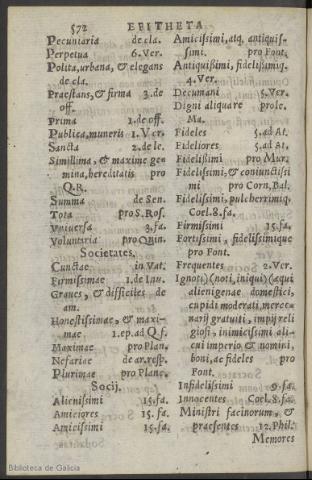 572 EPITHETA
Pecuniaria de cla.
Perpetua 6. Ver.
Polita, urbana, & elegans
de cla.
Praestans, & firma 3. de
off.
Prima 1. de off.
Publica, muneris 1. Ver.
Sancta 2. de le.
Simillima, & maxime ge-
mina, hereditatis pro
Q. R.
Summa de Sen.
Tota pro S. Ros.
Vniuersa 3. fa.
Voluntaria pro Quin.
Societates.
Cunctae in Vat.
Firmissimae 1. de Inu.
Graues, & difficiles de
am.
Honestissimae, & maxi-
mae 1. ep. ad Q. f.
Maximae pro Plan.
Nefariae de ar. resp.
Plurimae pro Planc.
Socij.
Alienissimi 15. fa.
Amiciores 15. fa.
Amicissimi 15. fa.
Amicissimi, atq. antiquis-
simi. pro Font.
Antiquißimi, fidelissimiq.
4. Ver.
Decumani 5. Ver.
Digni aliquare pro le.
Ma.
Fideles 5. ad At.
Fideliores 5. ad At.
Fidelißimi pro Mur.
Fidelissimi, & coniunctissi
mi pro Corn. Bal.
Fidelissimi, pulcherrimiq.
Coel. 8. fa.
Firmissimi 15. fa.
Fortissimi, fidelissimique
pro Font.
Frequentes 2. Ver.
Ignoti) (noti, iniqui) (aequi
alienigenae domestici,
cupidi moderati, merce-
narij gratuiti, impij reli
giosi, inimicissimi ali-
cui imperio & nomini,
boni, ac fideles pro
Font.
Infidelissimi 9. fa.
Innocentes Coel. 8. fa.
Ministri facinorum, &
praesentes 12. Phil.
Memores
Biblioteca de Galicia